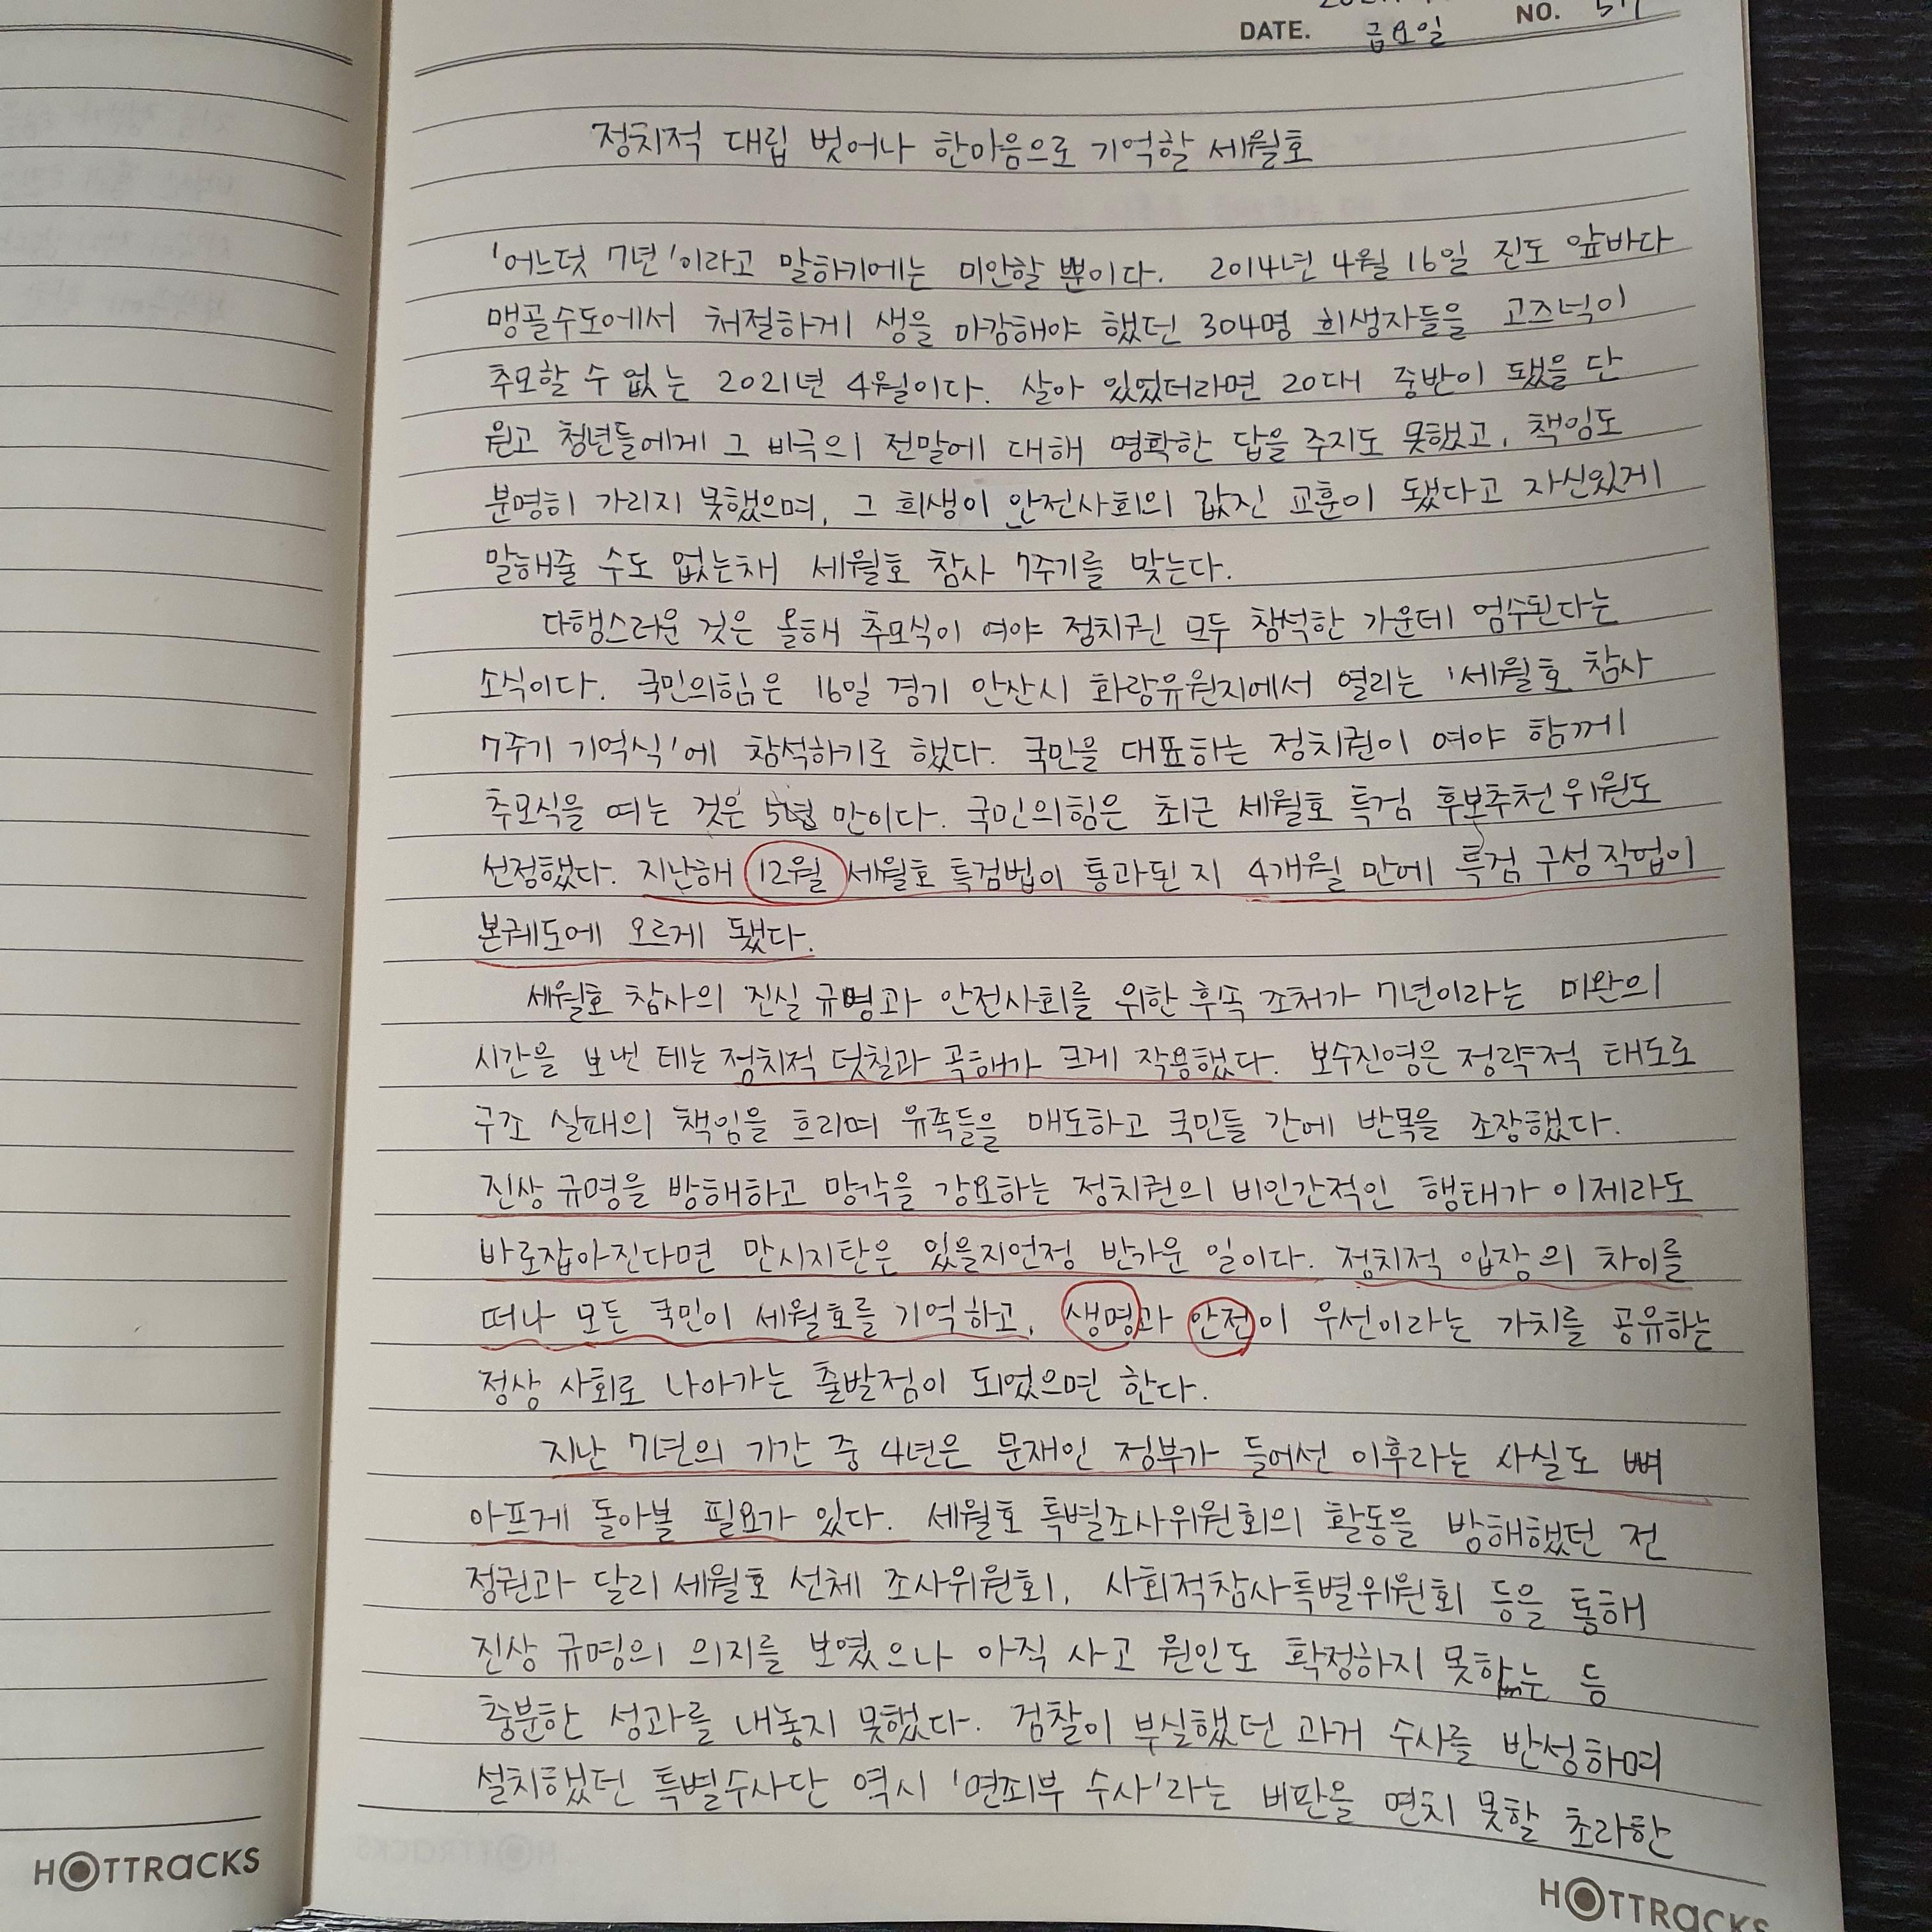 DATE. 금요일 NO.
정치적 대립 벗어나 한마음으로 기억할 세월호
'어느덧 7년'이라고 말하기에는 미안할 뿐이다. 2014년 4월 16일 진도 앞바다
맹골수도에서 처절하게 생을 마감해야 했던 304명 희생자들을 고즈넉이
추모할 수 없는 2021년 4월이다. 살아 있었더라면 20대 중반이 됐을 단
원고 청년들에게 그 비극의 전말에 대해 명확한 답을 주지도 못했고, 책임도
분명히 가리지 못했으며, 그 희생이 안전사회의 값진 교훈이 됐다고 자신있게
말해줄 수도 없는채 세월호 참사 7주기를 맞는다.
다행스러운 것은 올해 추모식이 여야 정치권 모두 참석한 가운데 엄수된다는
소식이다. 국민의힘은 16일 경기 안산시 화랑유원지에서 열리는 '세월호 참사
7주기 기억식'에 참석하기로 했다. 국민을 대표하는 정치권이 여야 함께
추모식을 여는 것은 5년 만이다. 국민의힘은 최근 세월호 특검 후보추천위원도
선정했다. 지난해 12월 세월호 특검법이 통과된 지 4개월 만에 특검 구성 작업이
본궤도에 오르게 됐다.
세월호 참사의 진실 규명과 안전사회를 위한 후속 조처가 7년이라는 미완의
시간을 보낸 데는 정치적 덧칠과 곡해가 크게 작용했다. 보수진영은 정략적 태도로
구조 실패의 책임을 흐리며 유족들을 매도하고 국민들 간에 반목을 조장했다.
진상 규명을 방해하고 망각을 강요하는 정치권의 비인간적인 행태가 이제라도
바로잡아진다면 만시지탄은 있을지언정 반가운 일이다. 정치적 입장의 차이를
떠나 모든 국민이 세월호를 기억하고, 생명과 안전이 우선이라는 가치를 공유하는
정상 사회로 나아가는 출발점이 되었으면 한다.
지난 7년의 기간 중 4년은 문재인 정부가 들어선 이후라는 사실도 뼈
아프게 돌아볼 필요가 있다. 세월호 특별조사위원회의 활동을 방해했던 전
정권과 달리 세월호 선체 조사위원회, 사회적참사특별위원회 등을 통해
진상 규명의 의지를 보였으나 아직 사고 원인도 확정하지 못하는 등
충분한 성과를 내놓지 못했다. 검찰이 부실했던 과거 수사를 반성하며
설치했던 특별수사단 역시 '면죄부 수사'라는 비판을 면치 못할 초라한
HOTTRACKS
HOTTRACKS